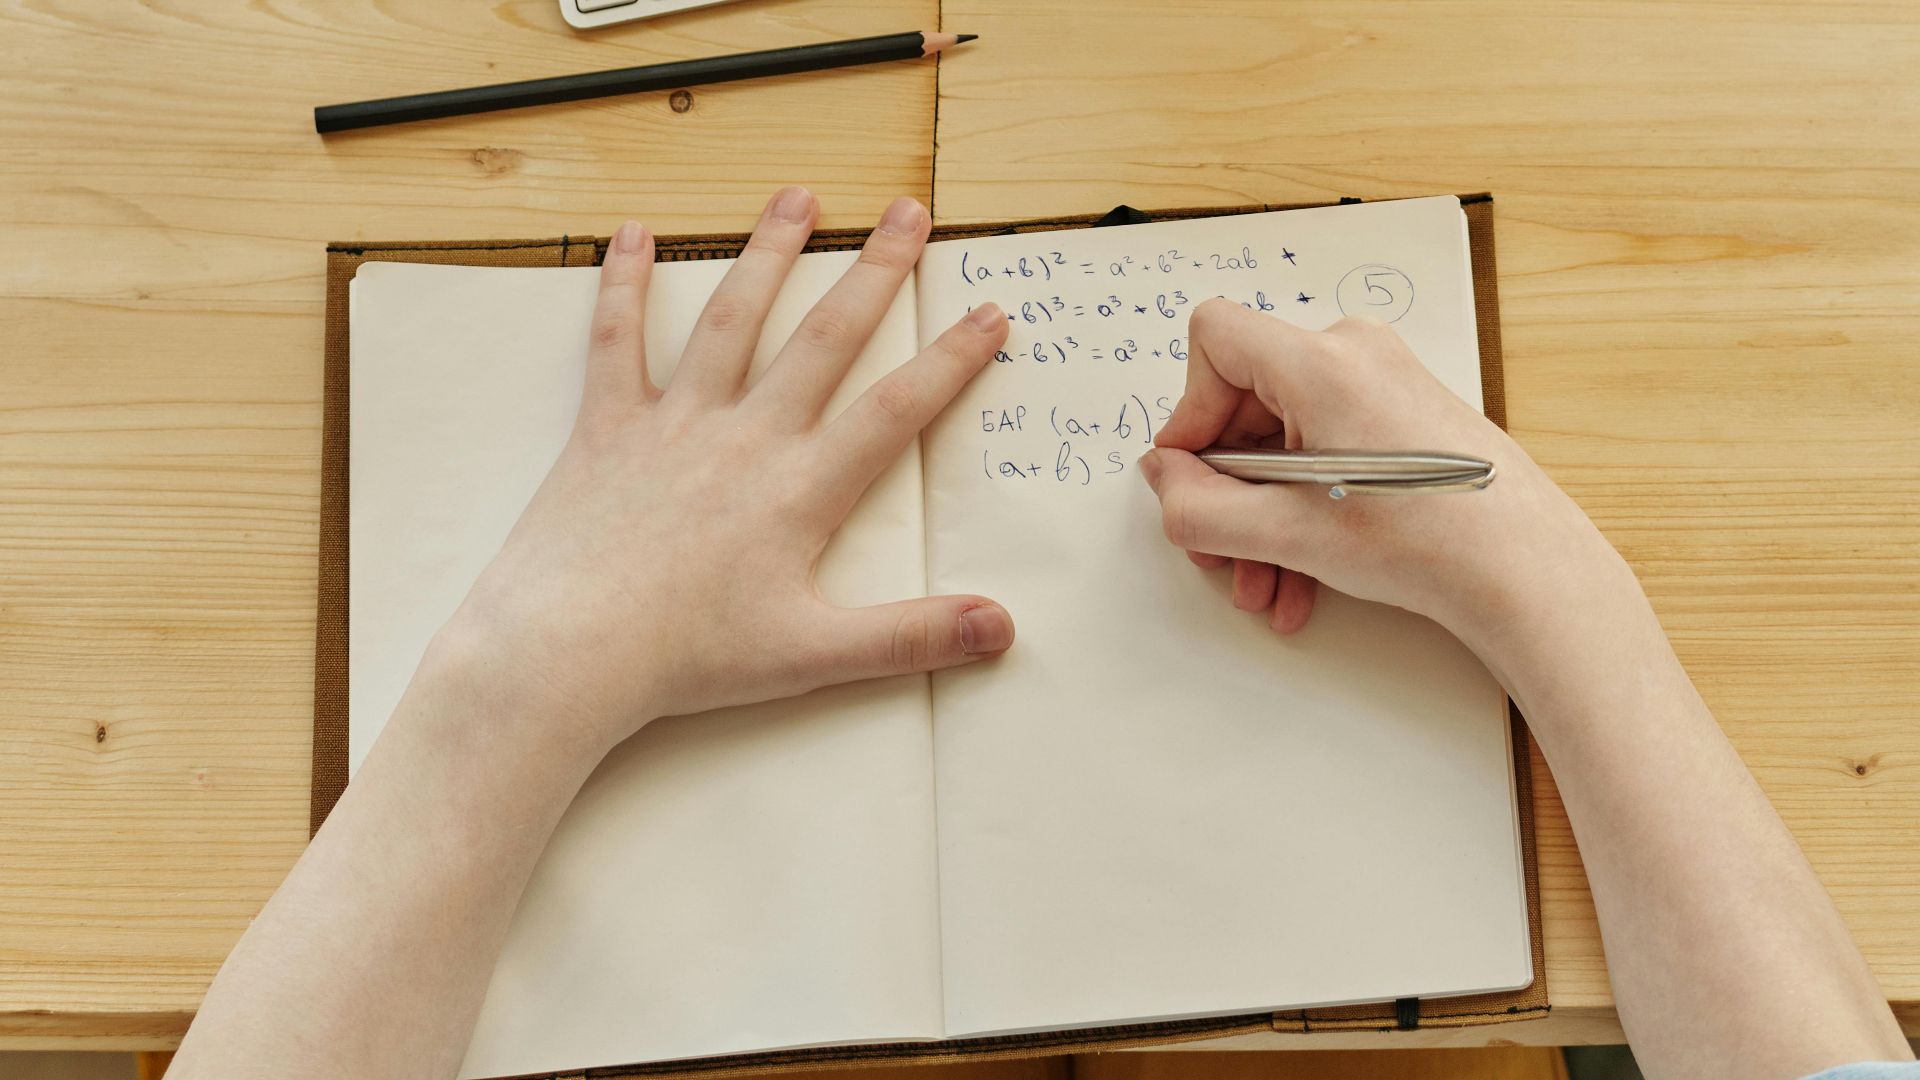 (a+b)² = a² + b² + 2ab *
b)³ = a³ * b³ ab *
5
a-b)³ = a³ + b
БАР (a+b) S
(a+b) S